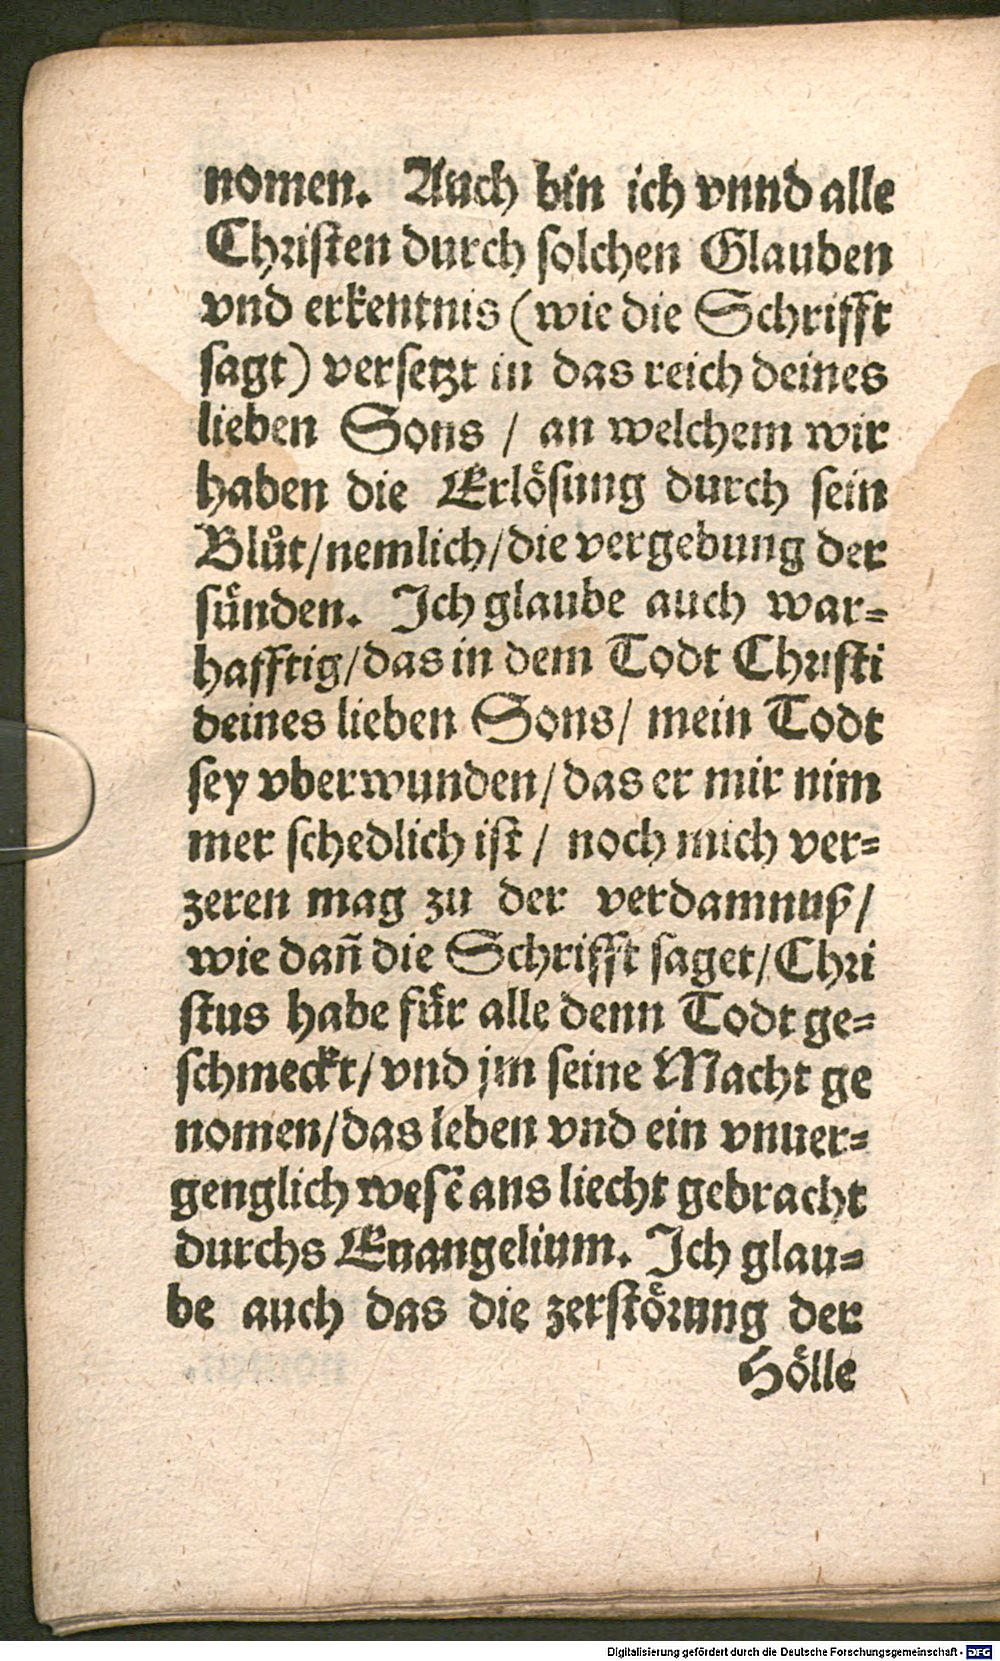 nomen. Auch bin ich vnnd alle
Christen durch solchen Glauben
vnd erkentnis (wie die Schrifft
sagt) versetzt in das reich deines
lieben Sons / an welchem wir
haben die Erlösung durch sein
Blůt/nemlich/die vergebung der
sünden. Ich glaube auch war=
hafftig/das in dem Todt Christi
deines lieben Sons/ mein Todt
sey vberwunden/das er mir nim
mer schedlich ist / noch mich ver=
zeren mag zu der verdamnuß/
wie dañ die Schrifft saget/Chri
stus habe für alle denn Todt ge=
schmeckt/vnd jm seine Macht ge
nomen/das leben vnd ein vnuer=
genglich wesē ans liecht gebracht
durchs Euangelium. Ich glau=
be auch das die zerstörung der
Hölle
Digitalisierung gefördert durch die Deutsche Forschungsgemeinschaft - DFG